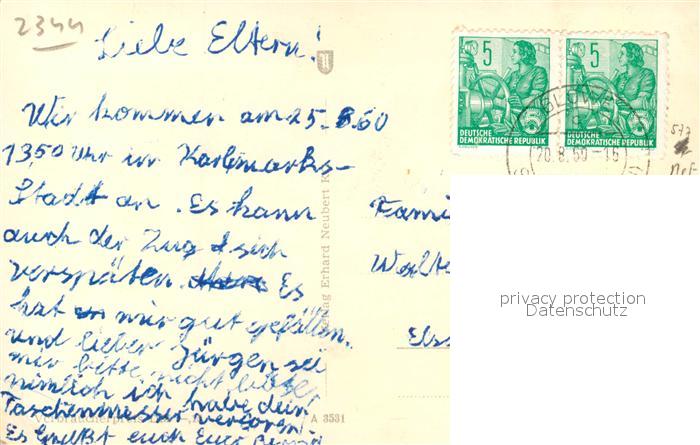 2344
Liebe Eltern!
Wir kommen am 25.8.60
13,50 Uhr in Karlmarks-
Stadt an. Es kann
auch der Zug sich
verspäten. Es
hat mir gut gefallen.
und lieber Jürgen sei
mir bitte nicht böse
nämlich ich habe dein
Taschenmesser verloren
Es grüßt euch Euer Bernd
5
5
DEUTSCHE
DEMOKRATISCHE REPUBLIK
DEUTSCHE
DEMOKRATISCHE REPUBLIK
GLOWE
20.8.60-16
Fami
Els
Verlag Erhard Neubert K
Verbraucherpreis
A 3531
privacy protection
Datenschutz